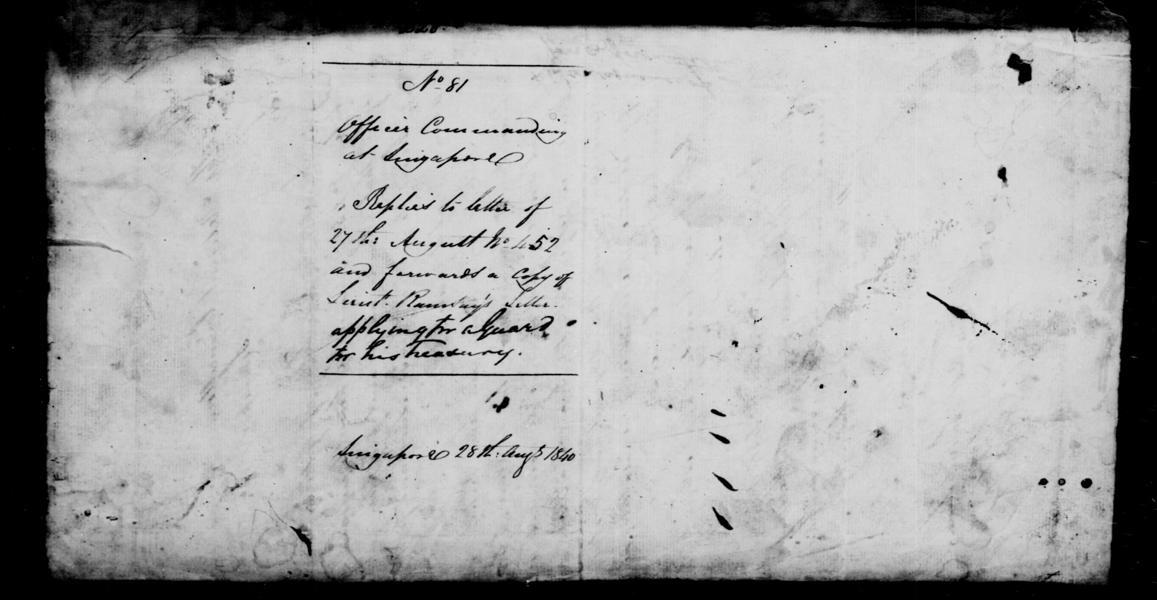 No 81
Officer Commanding
at Singapore
Replies to letter of
27th: August No 452
and forwards a Copy of
Lieut. Ramsay's Letter
applying for a Guard
for his treasury.
Singapore 28th: Augt 1840